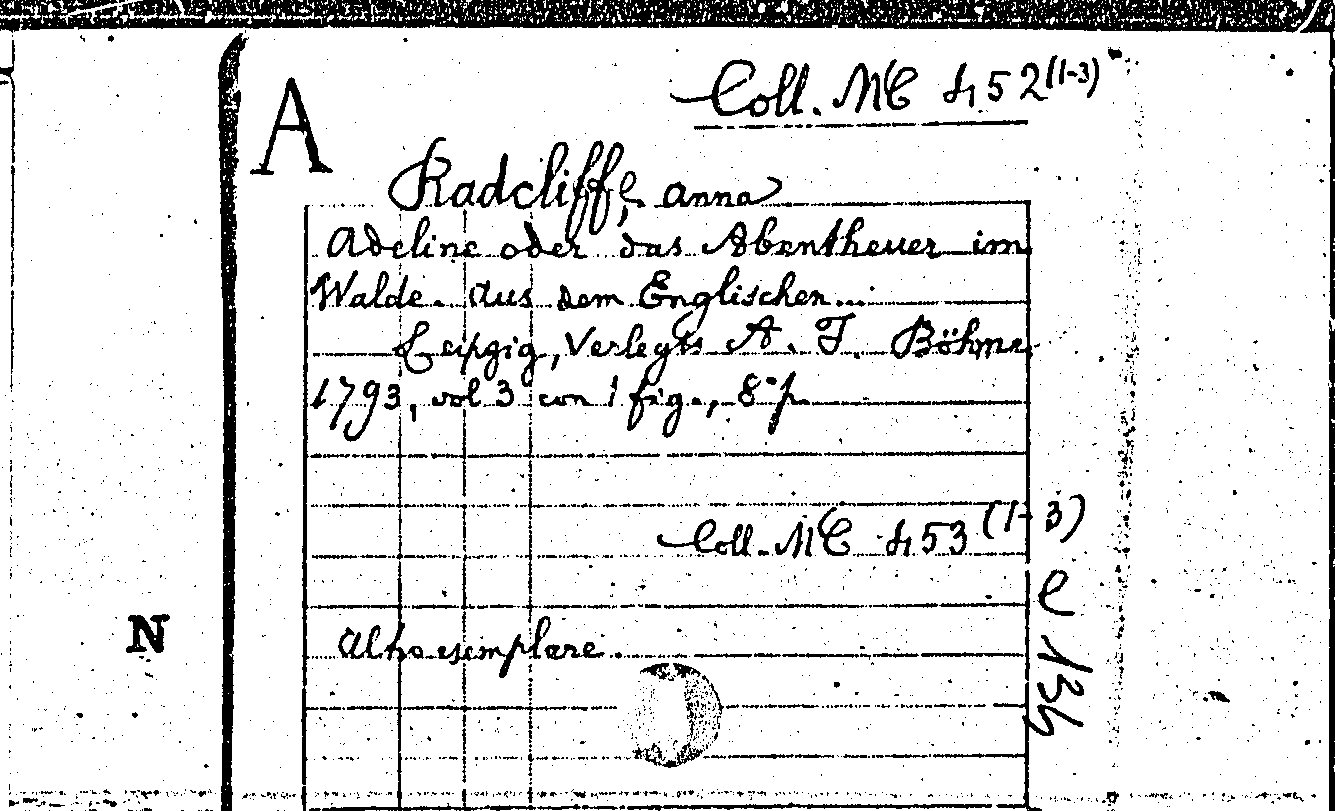 A
Coll. MC 452(1-3)
Radcliffe, Anna
Adeline oder das Abentheuer im
Walde. Aus dem Englischen...
Leipzig, Verlegts A. F. Böhme
1793, vol 3 con 1 fig., 8° p.
Coll. MC 453(1-3)
N
Altro esemplare.